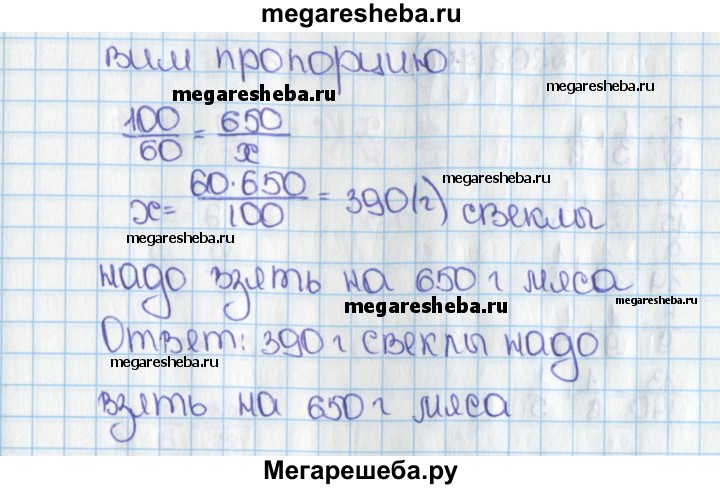 megaresheba.ru
вим пропорцию.
megaresheba.ru
megaresheba.ru
100/60 = 650/x
megaresheba.ru
x = 60·650/100 = 390(г) свеклы
megaresheba.ru
надо взять на 650 г мяса
megaresheba.ru
megaresheba.ru
Ответ: 390 г свеклы надо
megaresheba.ru
взять на 650 г мяса
Мегарешеба.ру